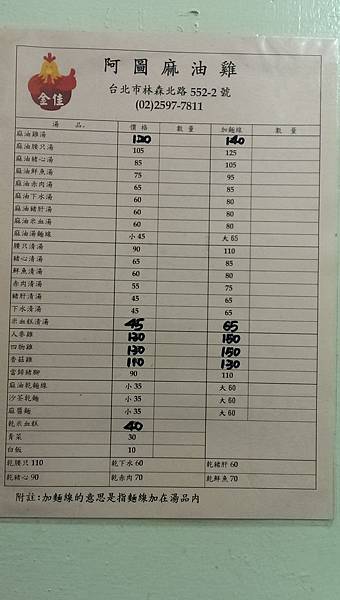 金佳
阿圖麻油雞
台北市林森北路 552-2 號
(02)2597-7811
湯 品. 價 格 數 量 加麵線 數 量
麻油雞湯 120 140
麻油腰只湯 105 125
麻油豬心湯 85 105
麻油鮮魚湯 75 95
麻油赤肉湯 65 85
麻油下水湯 60 80
麻油豬肝湯 60 80
麻油米血湯 60 80
麻油湯麵線 小 45 大 65
腰只清湯 90 110
豬心清湯 65 85
鮮魚清湯 60 80
赤肉清湯 55 75
豬肝清湯 45 65
下水清湯 45 65
米血糕清湯 45 65
人參雞 130 150
四物雞 130 150
香菇雞 110 130
當歸豬腳 90 110
麻油乾麵線 小 35 大 60
沙茶乾麵 小 35 大 60
麻醬麵 小 35 大 60
乾米血糕 40
青菜 30
白飯 10
乾腰只 110 乾下水 60 乾豬肝 60
乾豬心 90 乾赤肉 70 乾鮮魚 70
附註:加麵線的意思是指麵線加在湯品內